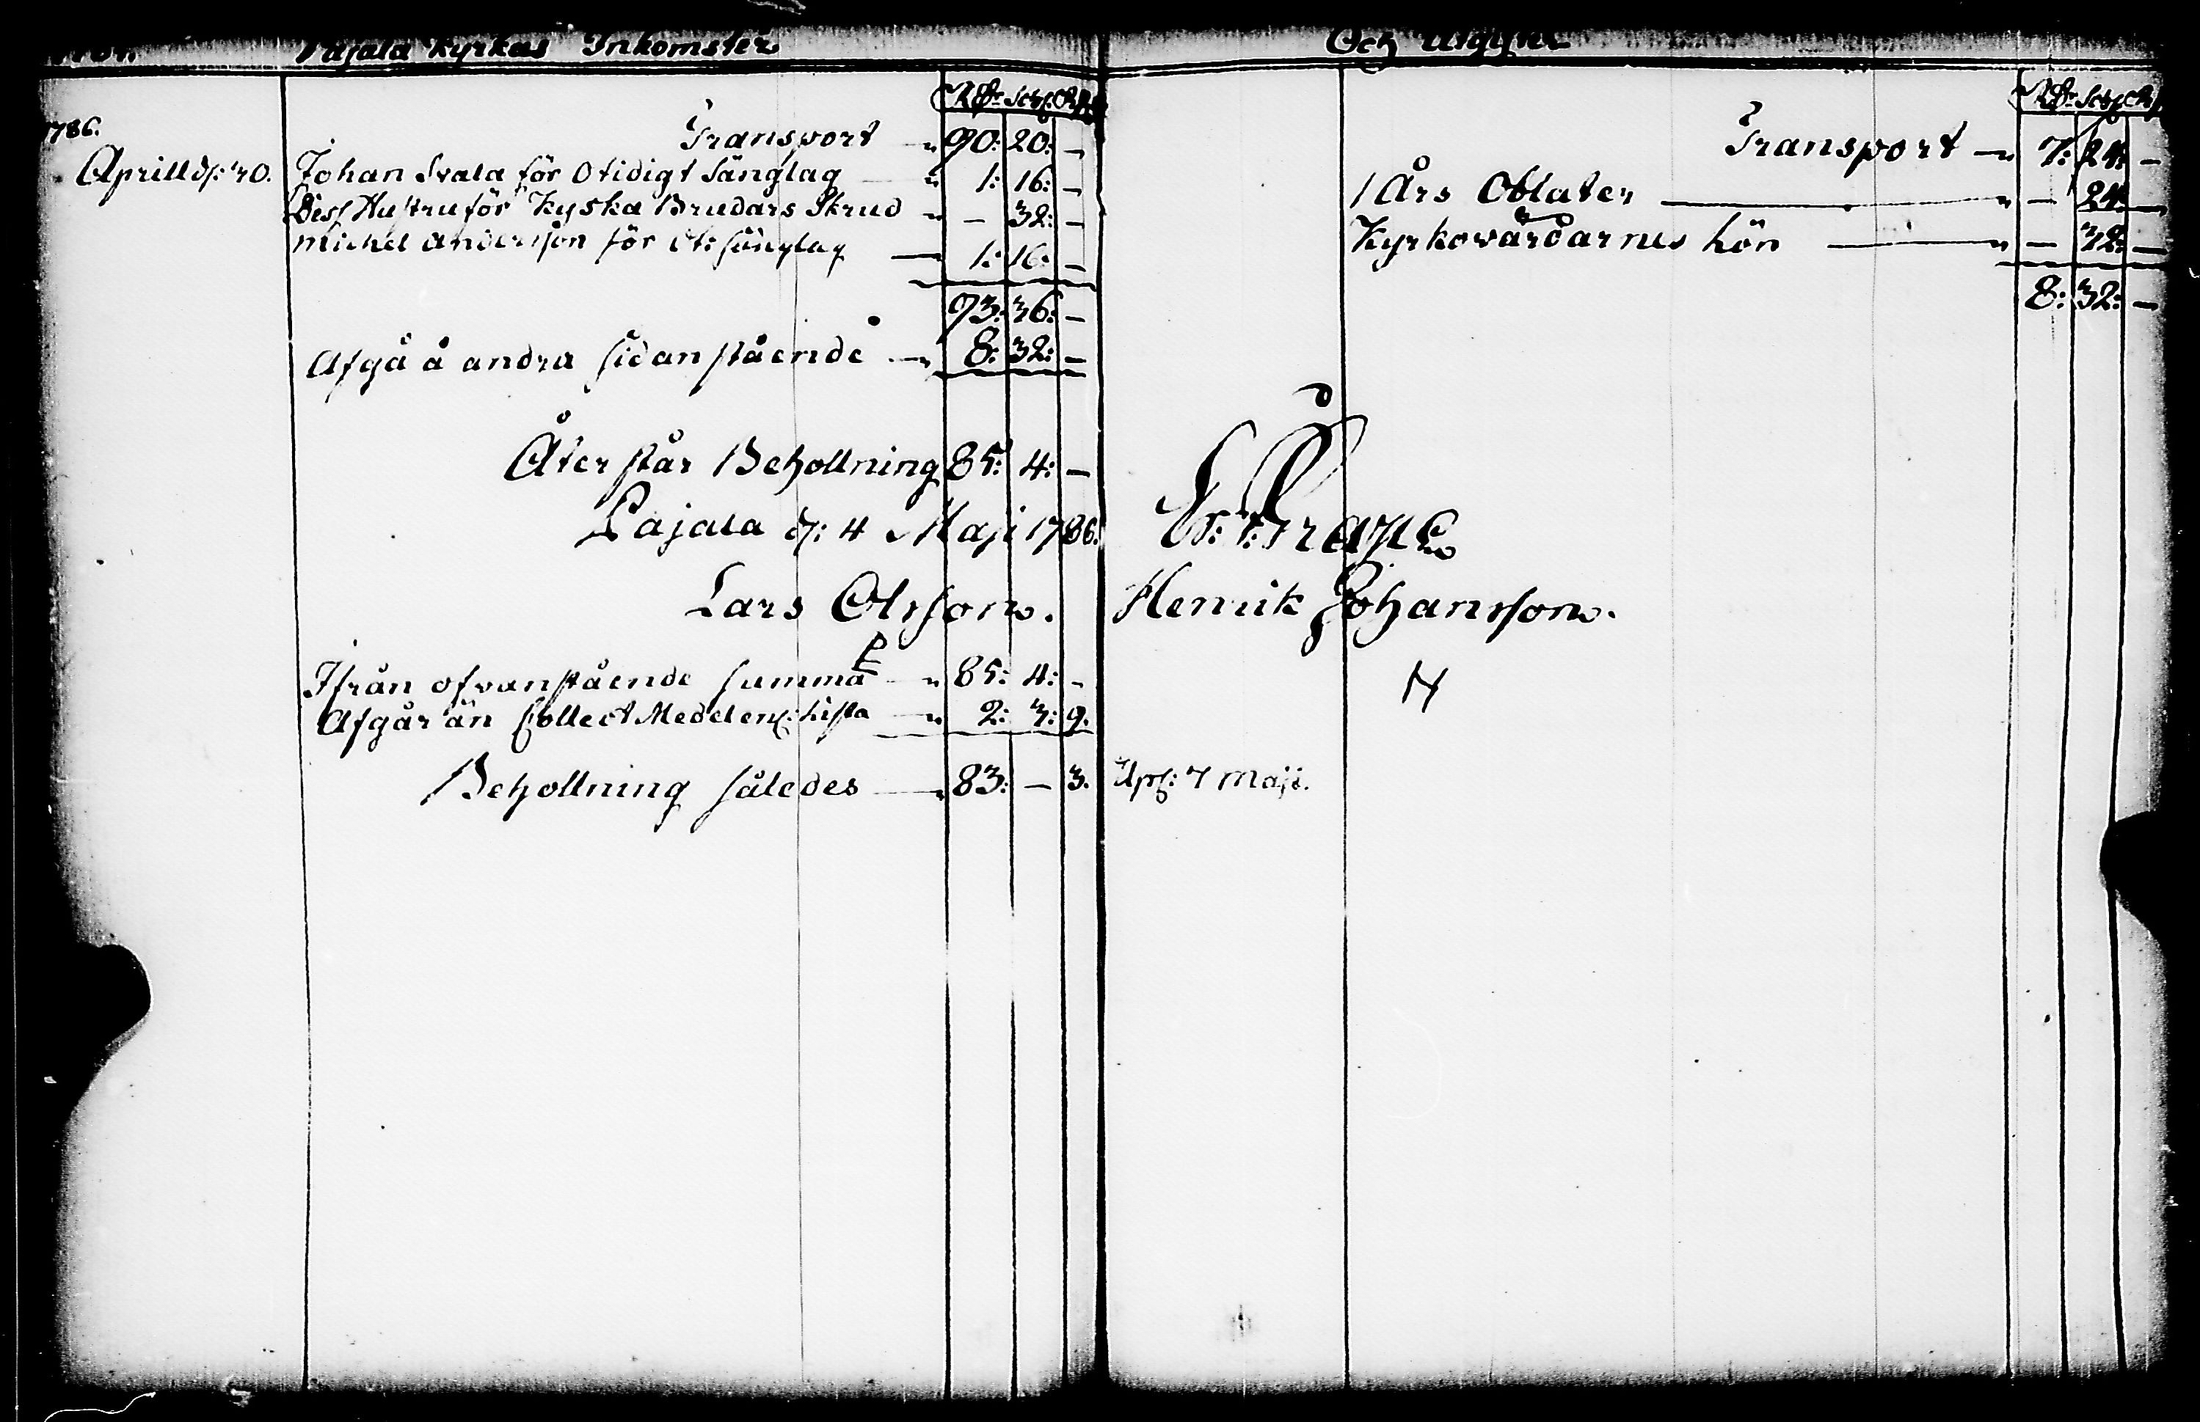 Pajala Kyrkas Inkomster
R:dr Sch: R:
1786.
Transport 90: 20: –
Aprill d: 30. Johan Svala för Otidigt Sänglag 1: 16: –
Dess Hustru för Kyska Brudars Skrud – 32: –
Michel Andersson för Ot: sänglag 1: 16: –
93: 36: –
Afgå å andra sidan stående 8: 32: –
Återstår Behollning 85: 4: –
Pajala d: 4 Maji 1786.
Lars Olsson.
Ifrån ofvanstående summa 85: 4: –
Afgår än Collect Medelens kista 2: 3: 9.
Behollning således 83: – 3.
Och Utgift
R:dr Sch: R:
Transport 7: 24: –
1 Års Oblater – 24: –
Kyrkovärdarnes lön – 32: –
8: 32: –
Henrik Johansson.
7 Maji.